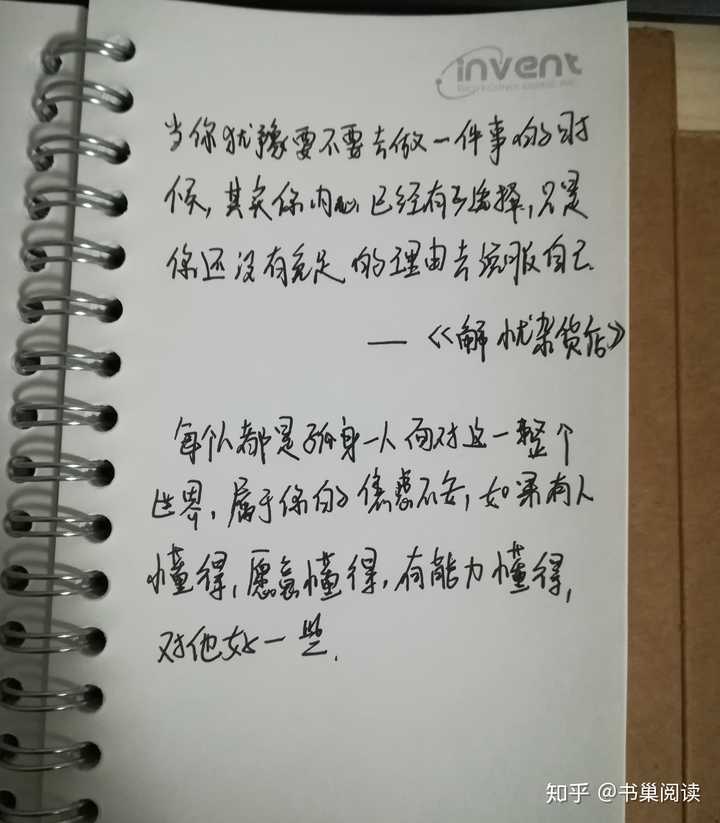 invent
当你犹豫要不要去做一件事的时
候,其实你内心已经有了选择,只是
你还没有充足的理由去说服自己.
—《解忧杂货店》
每个人都是孤身一人面对这一整个
世界,属于你的焦虑不安,如果有人
懂得,愿意懂得,有能力懂得,
对他好一些.
知乎 @书巢阅读